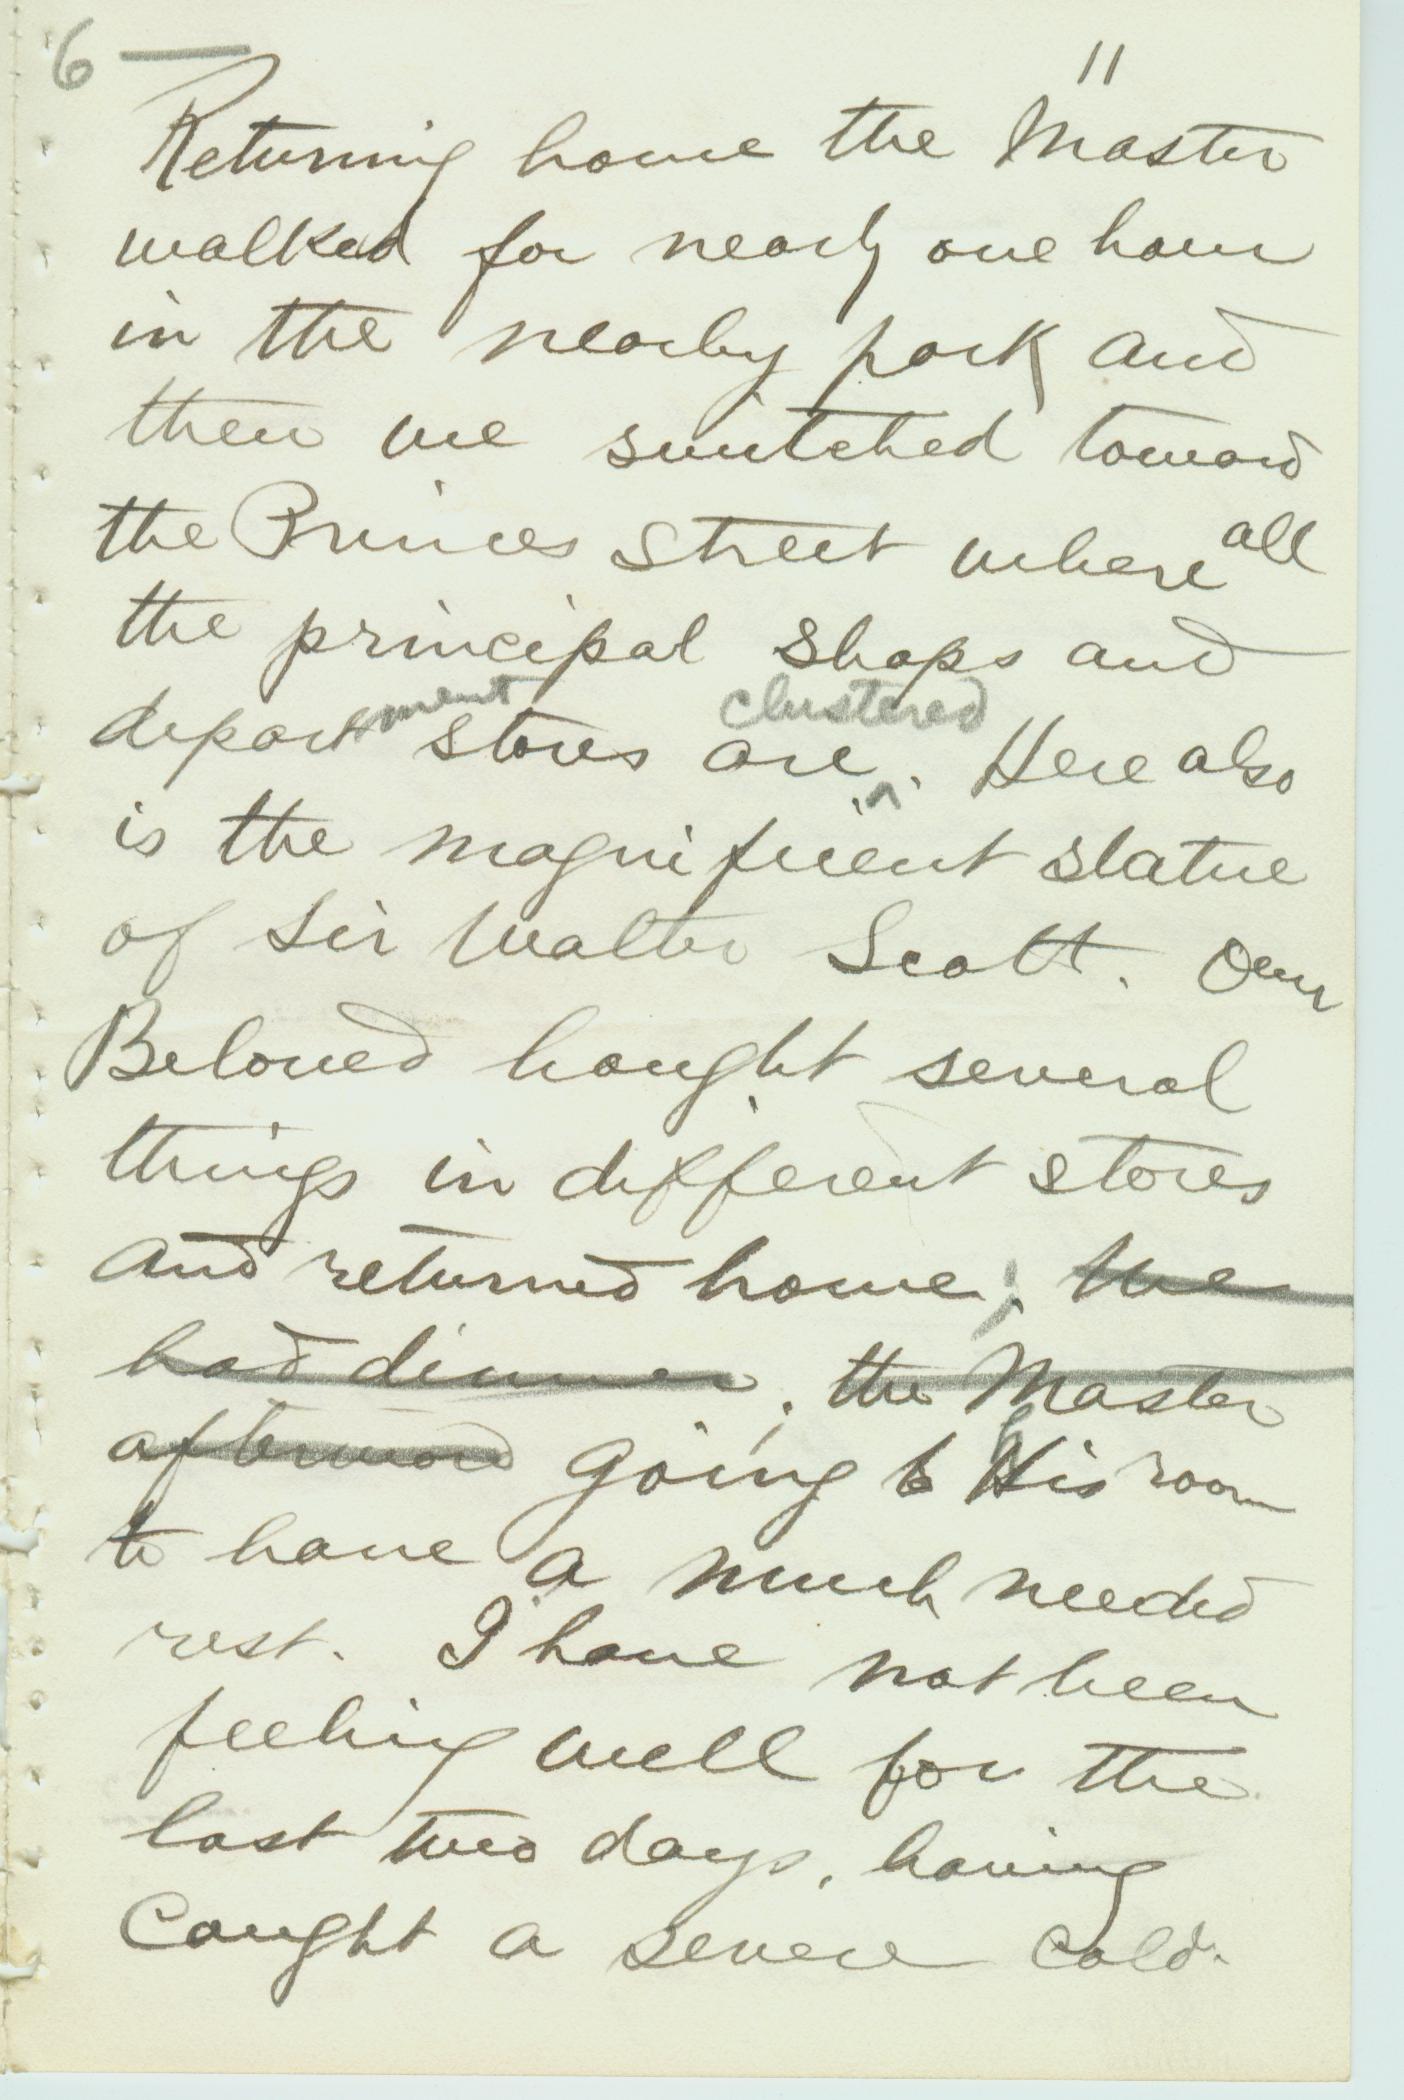 6 —
11
Returning home the Master
walked for nearly one hour
in the nearby park and
then we switched toward
the Princes Street where all
the principal shops and
department stores are clustered. Here also
is the magnificent statue
of Sir Walter Scott. Our
Beloved bought several
things in different stores
and returned home; We
had dinner, the Master
afterward going to His room
to have a much needed
rest. I have not been
feeling well for the
last two days, having
caught a severe cold.